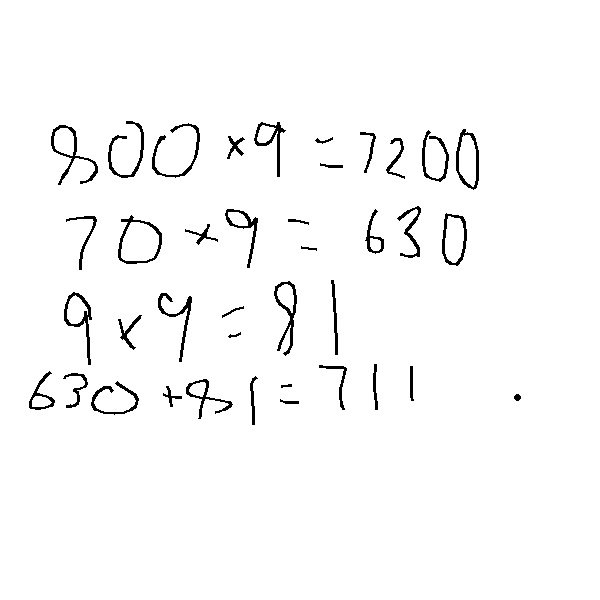 800 × 9 = 7200
70 × 9 = 630
9 × 9 = 81
630 + 81 = 711